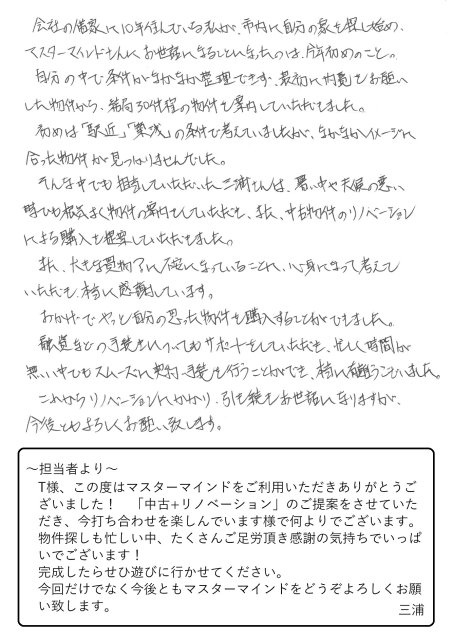 会社の借家に10年住んでいる私が、市内に自分の家を探し始め、
マスターマインドさんにお世話になることになったのは、今年初めのこと。
自分の中で条件がなかなか整理できず、最初に内覧をお願い
した物件から、結局30件程の物件を案内していただきました。
初めは「駅近」「築浅」の条件で考えていましたが、なかなかイメージに
合った物件が見つかりませんでした。
そんな中でも担当していただいた三浦さんは、暑い中や天候の悪い
時にも根気よく物件の案内をしていただき、また、中古物件のリノベーション
による購入を提案していただきました。
また、大きな買物
になっていることに、心身になって考えて
いただき、本当に感謝しています。
おかげでやっと自分の思った物件を購入することができました。
融資などの手続きについてもサポートをしていただき、忙しく時間が
無い中でもスムーズに契約手続きを行うことができ、本当に有難うございました。
これからリノベーションにかかり、引き続きお世話になりますが、
今後ともよろしくお願い致します。
～担当者より～
T様、この度はマスターマインドをご利用いただきありがとうご
ざいました！　「中古+リノベーション」のご提案をさせていた
だき、今打ち合わせを楽しんでいます様で何よりでございます。
物件探しも忙しい中、たくさんご足労頂き感謝の気持ちでいっぱ
いでございます！
完成したらぜひ遊びに行かせてください。
今回だけでなく今後ともマスターマインドをどうぞよろしくお願
い致します。
三浦